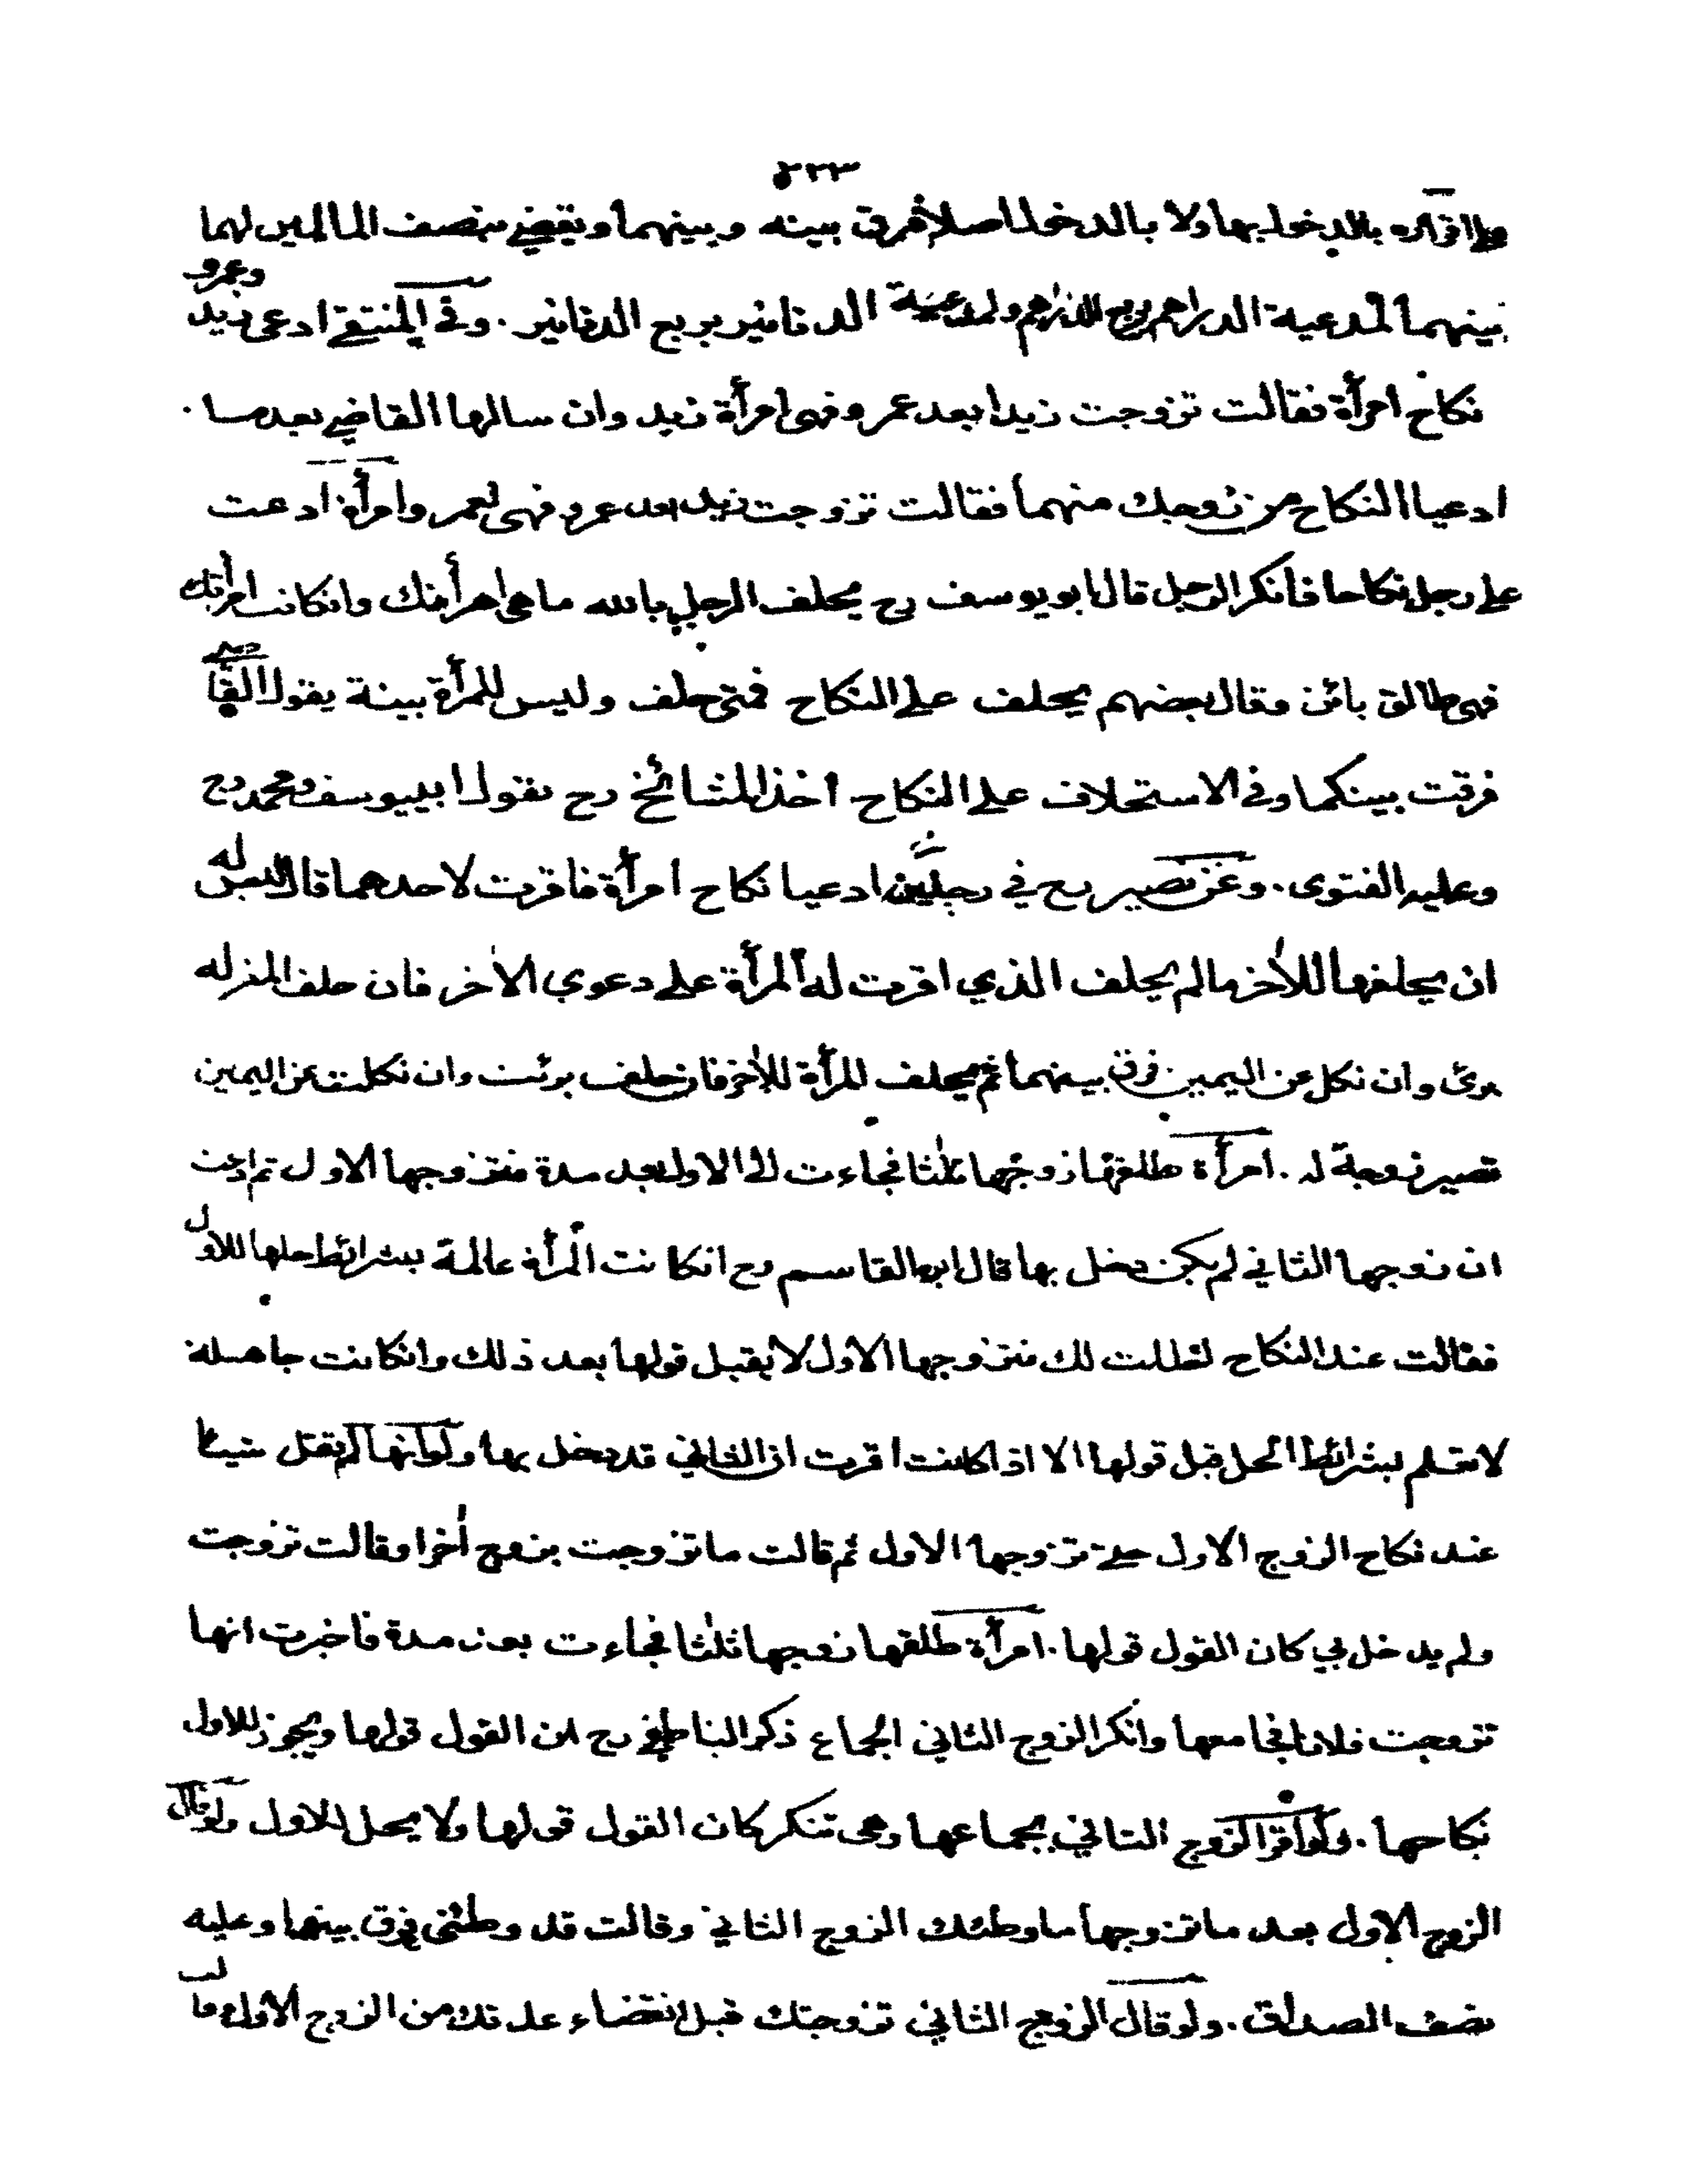 على اقراره بالدخول بها ولا بالدخول اصلا فرق بينه وبينهما ويقضى بنصف المالين لهما
بينهما لمدعية الدراهم ربع الدراهم ولمدعية الدنانير بربع الدنانير . وفى المنتقى ادعى زيد وعمرو
نكاح امرأة فقالت تزوجت زيدا بعد عمرو فهى امرأة زيد وان سالها القاضى بعد ما
ادعيا النكاح من زوجك منهما فقالت تزوجت زيد بعد عمرو فهى لعمرو وامرأة ادعت
على رجل نكاحا فانكر الرجل قال ابو يوسف رح يحلف الرجل بالله ما هى امرأتك وان كانت امرأتك
فهى طالق بائن وقال بعضهم يحلف على النكاح فمتى حلف وليس للمرأة بينة يقول القاضى
فرقت بينكما وفى الاستحلاف على النكاح اخذ المشائخ رح بقول ابى يوسف ومحمد رح
وعليه الفتوى . وعن نصير رح في رجلين ادعيا نكاح امرأة فاقرت لاحدهما قال ليس له
ان يحلفها للاخر ما لم يحلف الذي اقرت له المرأة على دعوى الاخر فان حلف المقر له
برئ وان نكل عن اليمين فرق بينهما ثم يحلف المرأة للاخر فان حلفت برئت وان نكلت عن اليمين
تصير زوجة له . امرأة طلقها زوجها ثلثا فجاءت الى الاول بعد مدة فتزوجها الاول ثم ادعت
ان زوجها الثاني لم يكن دخل بها قال ابو القاسم رح ان كانت المرأة عالمة بشرائط حلها للاول
فقالت عند النكاح لقد حللت لك فتزوجها الاول لا يقبل قولها بعد ذلك وان كانت جاهلة
لا تعلم بشرائط الحل قبل قولها الا اذا كانت اقرت ان الثاني قد دخل بها ولو انها لم تقل شيئا
عند نكاح الزوج الاول حتى تزوجها الاول ثم قالت ما تزوجت بزوج اخر او قالت تزوجت
ولم يدخل بي كان القول قولها . امرأة طلقها زوجها ثلثا فجاءت بعد مدة فاخبرت انها
تزوجت فلانا فجامعها وانكر الزوج الثاني الجماع ذكر الناطفي رح ان القول قولها ويجوز للاول
نكاحها . ولو اقر الزوج الثاني بجماعها وهى تنكر كان القول قولها ولا يحل للاول ولو قال
الزوج الاول بعد ما تزوجها ما وطئك الزوج الثاني وقالت قد وطئنى يفرق بينهما وعليه
نصف الصداق . ولو قال الزوج الثاني تزوجتك قبل انقضاء عدتك من الزوج الاول وقالت